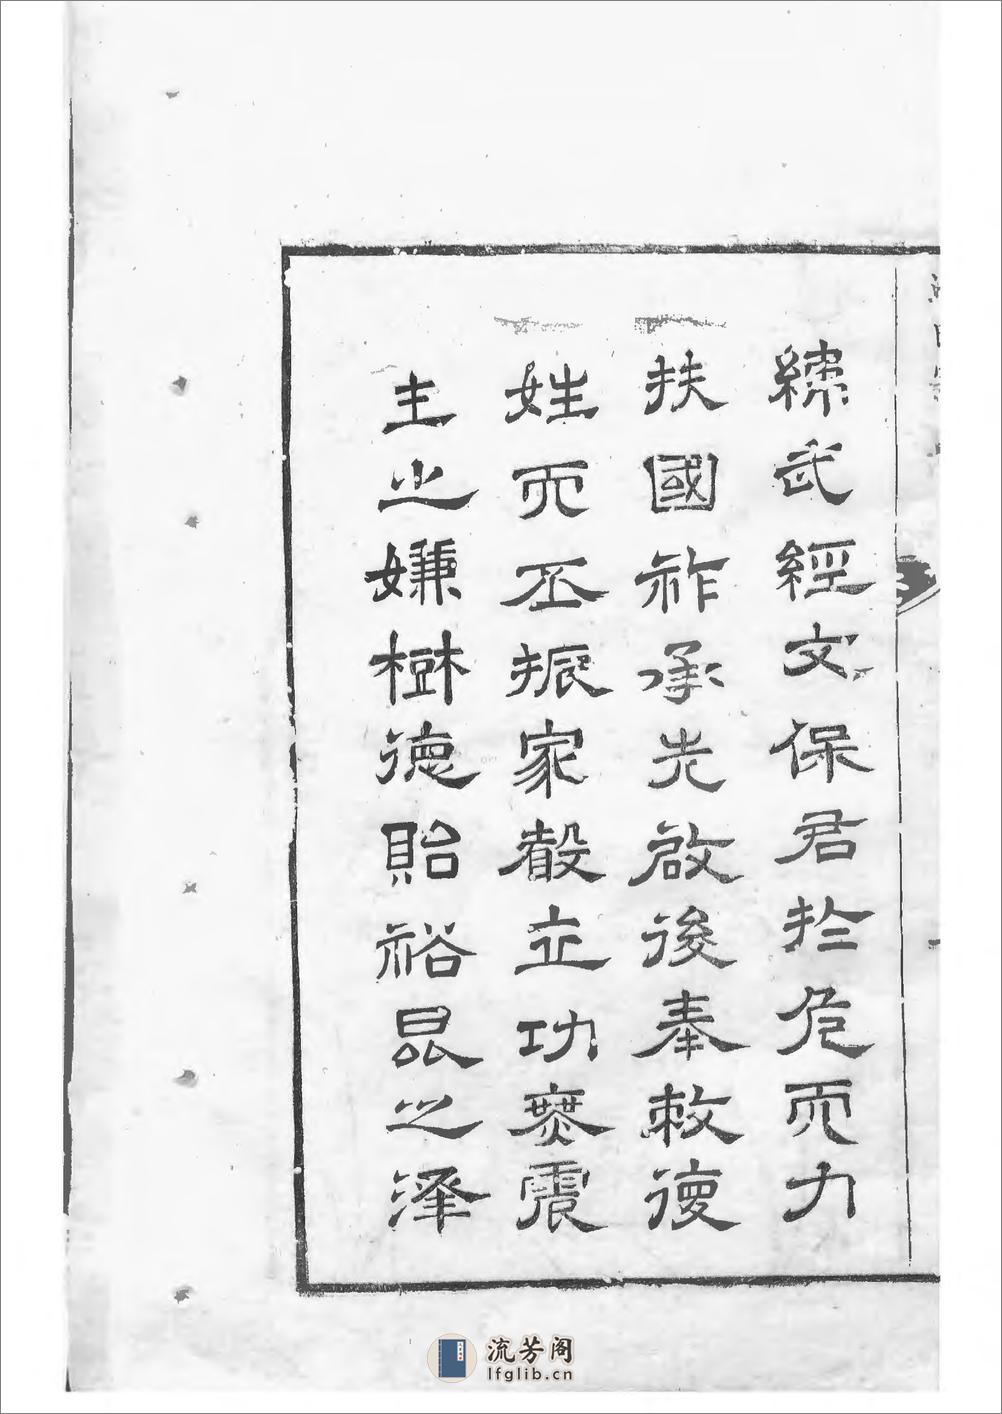 緯武經文保君於危而力
扶國祚承先啟後奉敕復
姓而丕振家聲立功無震
主之嫌樹德貽裕昆之澤
流芳阁
lfglib.cn